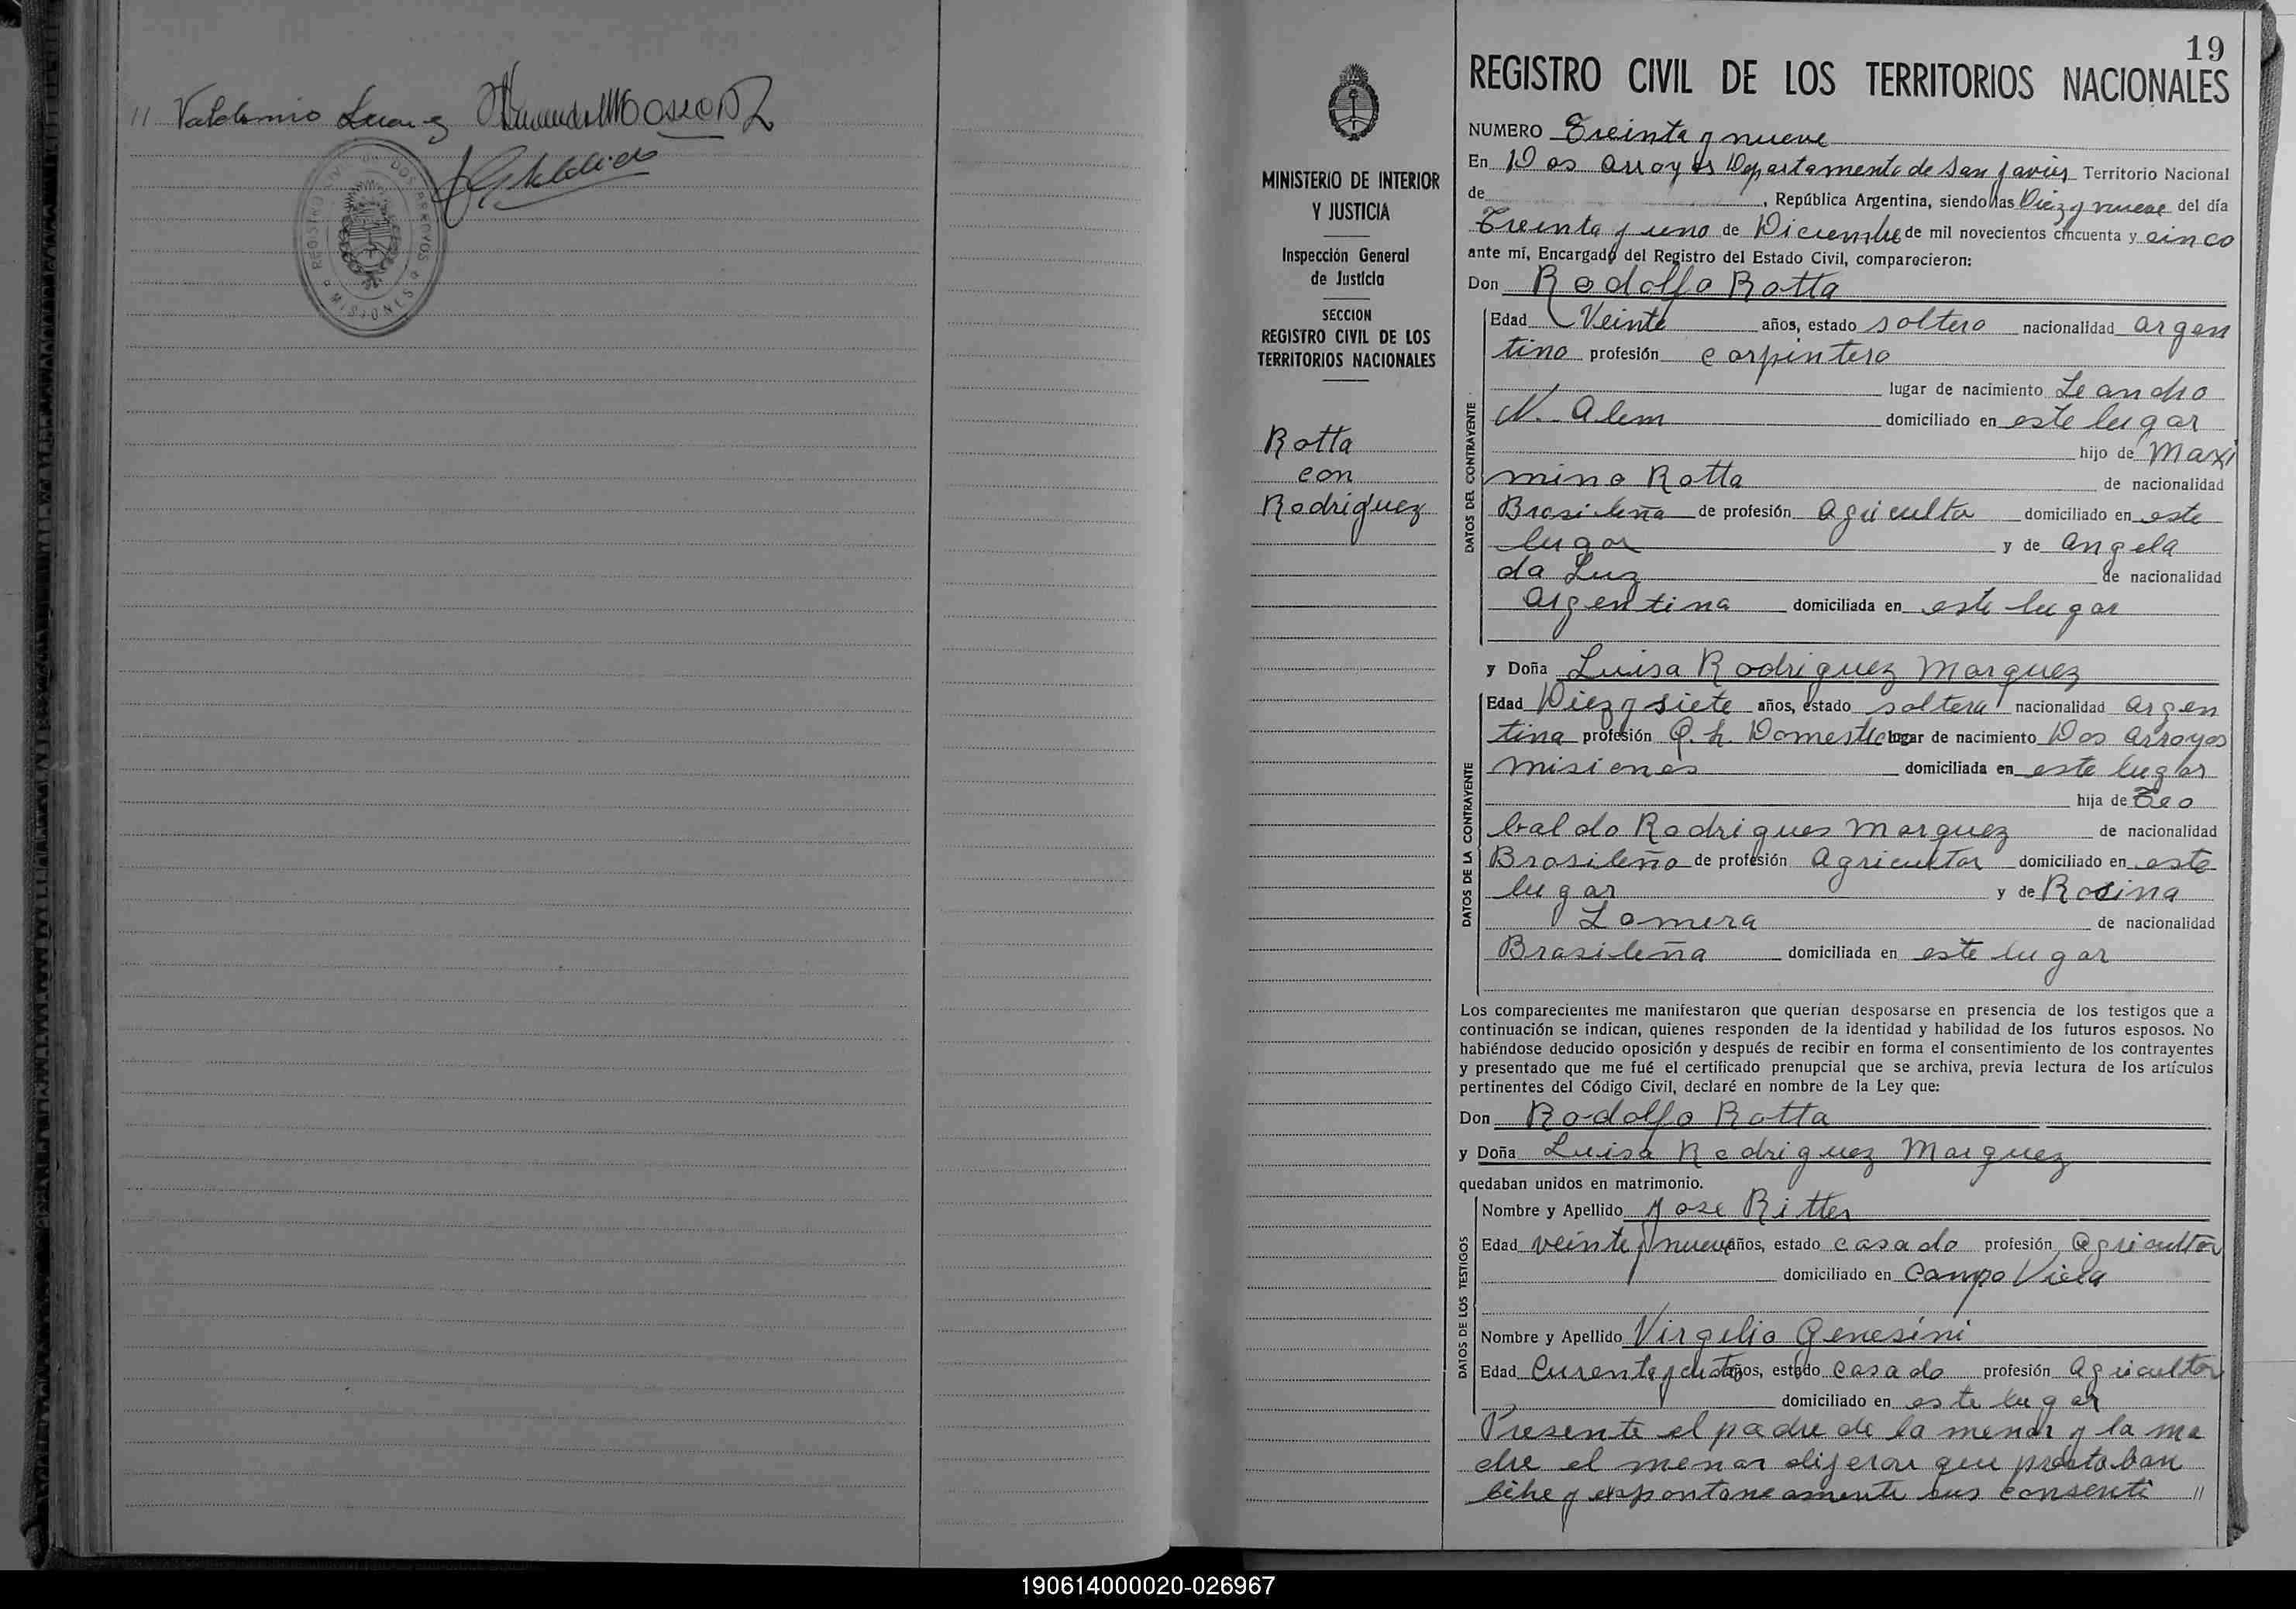 " Valdemiro
REGISTRO CIVIL DE DOS ARROYOS
MISIONES
MINISTERIO DE INTERIOR
Y JUSTICIA
Inspección General
de Justicia
SECCION
REGISTRO CIVIL DE LOS
TERRITORIOS NACIONALES
Rotta
con
Rodriguez
19
REGISTRO CIVIL DE LOS TERRITORIOS NACIONALES
NUMERO Treinta y nueve
En Dos arroyos Departamento de San Javier Territorio Nacional
de , República Argentina, siendo las Diez y nueve del día
Treinta y uno de Diciembre de mil novecientos cincuenta y cinco
ante mí, Encargado del Registro del Estado Civil, comparecieron:
Don Rodolfo Rotta
DATOS DEL CONTRAYENTE
Edad Veinte años, estado soltero nacionalidad argen
tino profesión carpintero
lugar de nacimiento Leandro
N. Alem domiciliado en este lugar
hijo de Maxi
mino Rotta de nacionalidad
Brasileña de profesión Agriculto domiciliado en este
lugar y de Angela
da Luz de nacionalidad
Argentina domiciliada en este lugar
y Doña Luisa Rodriguez Marquez
DATOS DE LA CONTRAYENTE
Edad Diez y siete años, estado soltera nacionalidad Argen
tina profesión Q. h. Domesticos lugar de nacimiento Dos Arroyos
Misiones domiciliada en este lugar
hija de Teo
baldo Rodrigues Marquez de nacionalidad
Brasileño de profesión Agricultor domiciliado en este
lugar y de Rosina
Lomera de nacionalidad
Brasileña domiciliada en este lugar
Los comparecientes me manifestaron que querían desposarse en presencia de los testigos que a
continuación se indican, quienes responden de la identidad y habilidad de los futuros esposos. No
habiéndose deducido oposición y después de recibir en forma el consentimiento de los contrayentes
y presentado que me fué el certificado prenupcial que se archiva, previa lectura de los artículos
pertinentes del Código Civil, declaré en nombre de la Ley que:
Don Rodolfo Rotta
y Doña Luisa Rodriguez Marquez
quedaban unidos en matrimonio.
DATOS DE LOS TESTIGOS
Nombre y Apellido Jose Ritter
Edad veinte y nueve años, estado casado profesión Agricultor
domiciliado en Campo Viera
Nombre y Apellido Virgilio Genesini
Edad Curenta y cuatro años, estado casado profesión Agricultor
domiciliado en este lugar
Presente el padre de la menor y la ma
dre el menor dijeron que prestaban
libre y expontoneamente sus consenti "
190614000020-026967